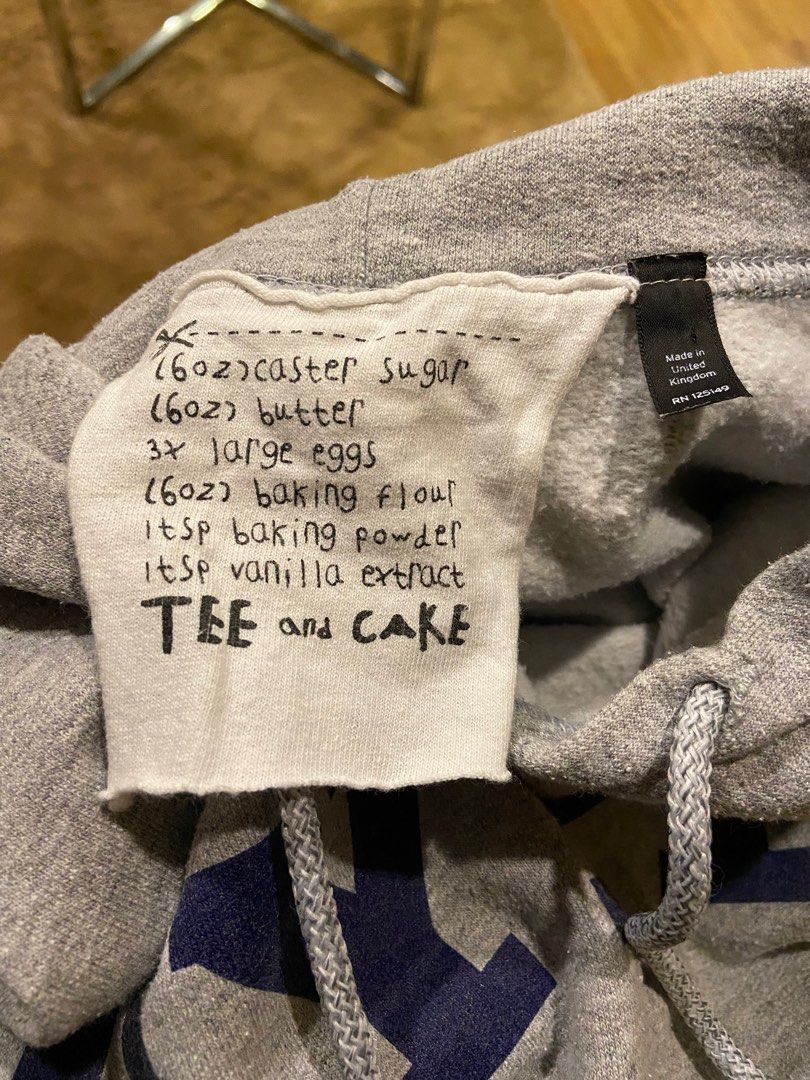 (6oz)caster sugar
(6oz) butter
3x large eggs
(6oz) baking flour
1tsp baking powder
1tsp vanilla extract
TEE and CAKE
Made in
United
Kingdom
RN 125149